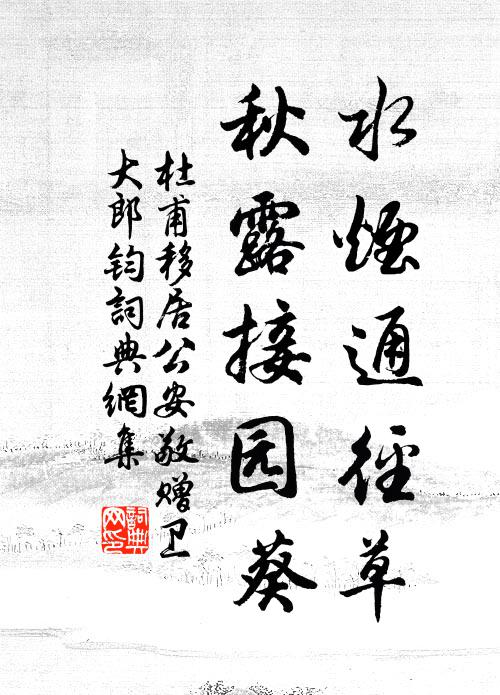 水煙通徑草
秋露接园葵
杜甫移居公安敬赠卫
大郎钧詞典網集
詞典网印